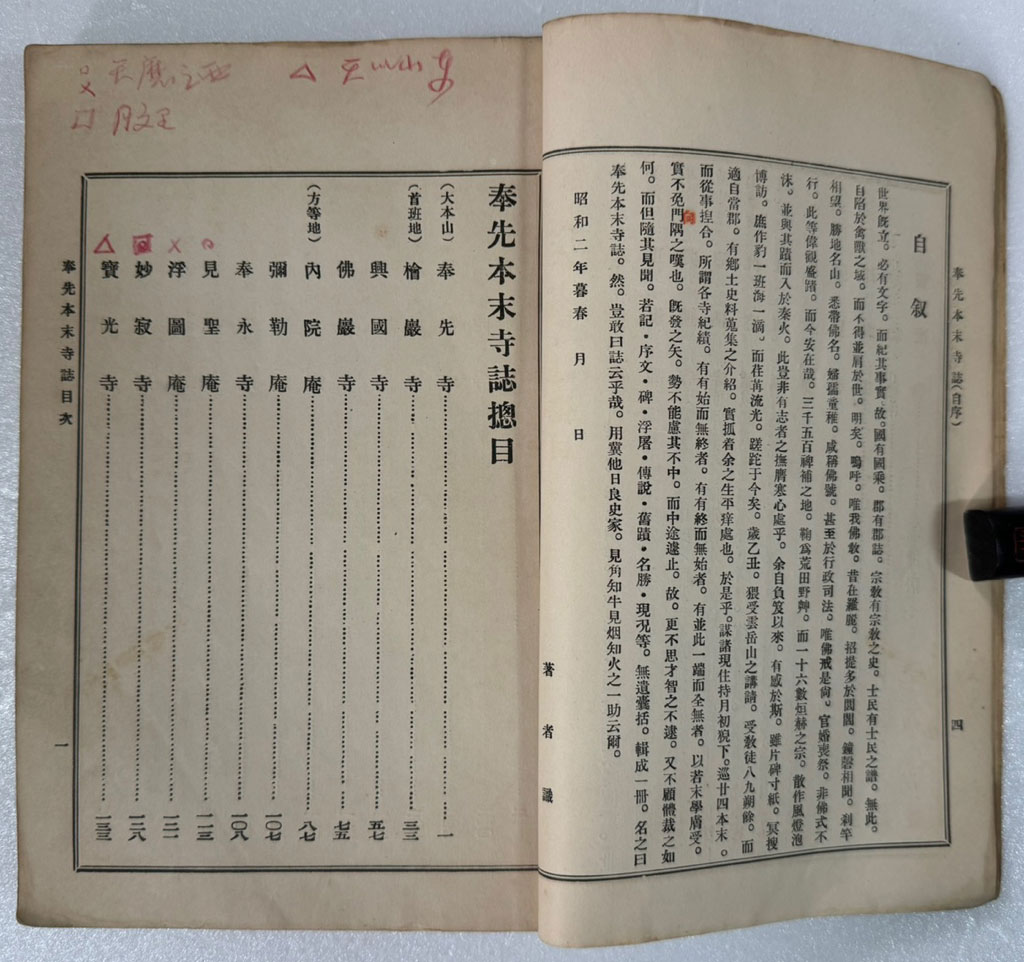 奉先本末寺誌(自序)
四
自叙
世界旣立。必有文字。而紀其事實。故。國有國乘。郡有郡誌。宗敎有宗敎之史。士民有士民之譜。無此。
自陷於禽獸之域。而不得並肩於世。明矣。嗚呼。唯我佛敎。昔在羅麗。招提多於閭閻。鐘磬相聞。刹竿
相望。勝地名山。悉帶佛名。蟠孺童稚。咸稱佛號。甚至於行政司法。唯佛戒是尙。官婚喪祭。非佛式不
行。此等偉觀盛蹟。而今安在哉。三千五百裨補之地。鞠爲荒田野艸。而一十六數烜赫之宗。散作風燈泡
沫。並與其蹟而入於秦火。此豈非有志者之撫膺寒心處乎。余自負笈以來。有感於斯。雖片碑寸紙。冥搜
博訪。庶作豹一班海一滴。而荏苒流光。蹉跎于今矣。歲乙丑。猥受雲岳山之講請。受敎徒八九朔餘。而
適自當郡。有鄕土史料蒐集之介紹。實孤着余之生平痒處也。於是乎。謀諸現住持月初稅下。巡廿四本末。
而從事揑合。所謂各寺紀績。有有始而無終者。有有終而無始者。有並此一端而全無者。以若末學膚受。
實不免門隅之嘆也。旣發之矢。勢不能慮其不中。而中途遽止。故。更不思才智之不逮。又不顧體裁之如
何。而但隨其見聞。若記・序文・碑・浮屠・傳說・舊蹟・名勝・現况等。無遺囊括。輯成一冊。名之曰
奉先本末寺誌。然。豈敢曰誌云乎哉。用冀他日良史家。見角知牛見烟知火之一助云爾。
昭和二年暮春 月 日
著者識
奉先本末寺誌摠目
(大本山) 奉先寺 一
(首班地) 檜巖寺 三三
興國寺 五七
佛巖寺 七五
(方等地) 內院庵 八七
彌勒庵 一〇七
奉永寺 一〇八
見聖庵 一一三
浮圖庵 一二一
妙寂寺 一二八
寶光寺 一三三
奉先本末寺誌目次
一